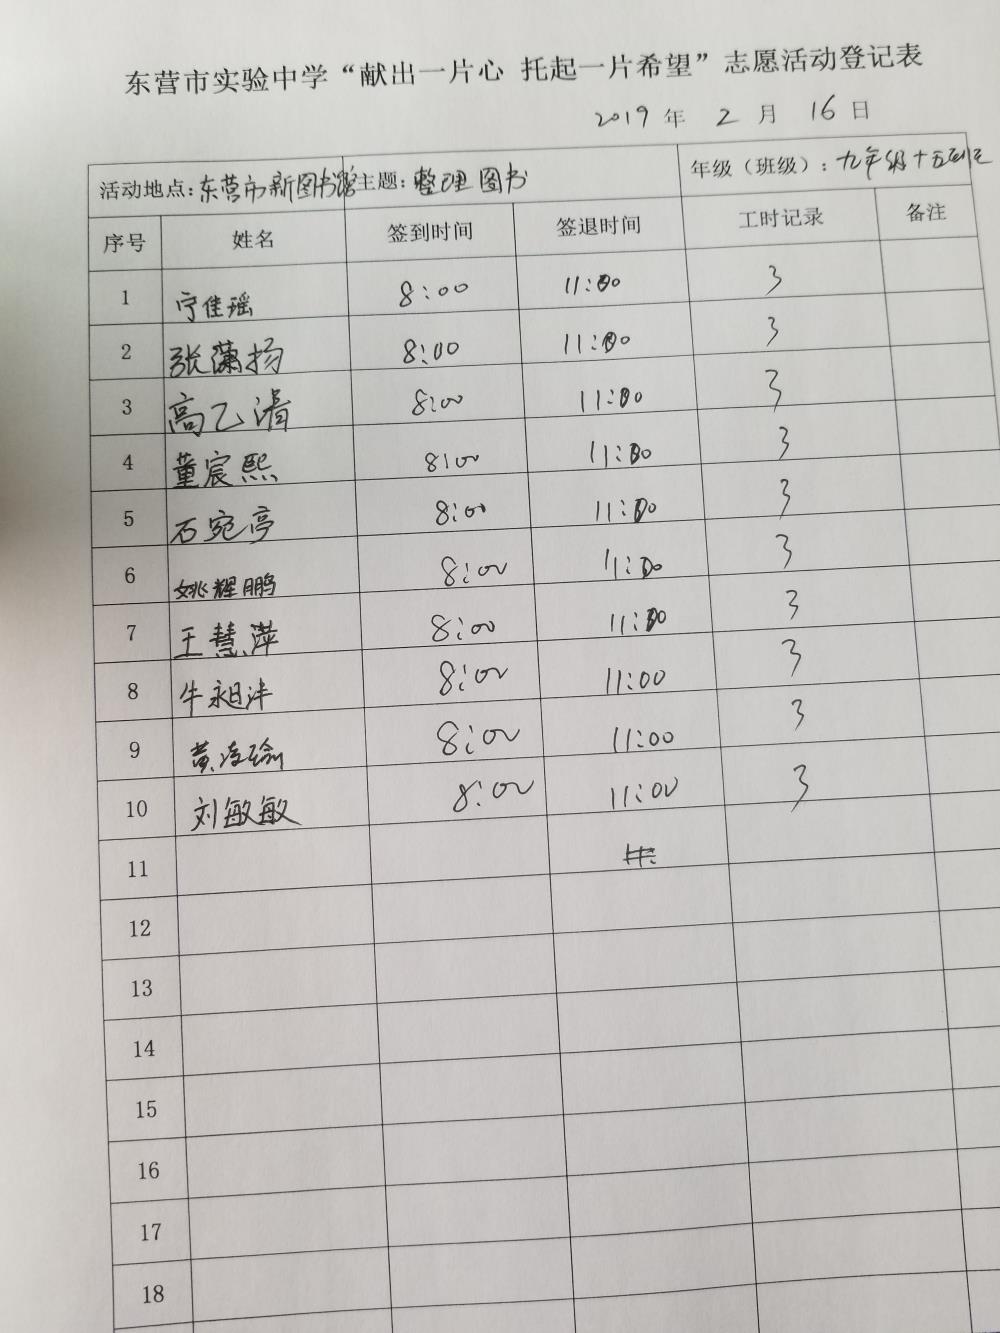 东营市实验中学“献出一片心 托起一片希望”志愿活动登记表
2019 年 2 月 16 日
活动地点：东营市新图书馆 主题：整理图书 年级（班级）：九年级十五班
序号 姓名 签到时间 签退时间 工时记录 备注
1 宁佳瑶 8:00 11:00 3
2 张潇扬 8:00 11:00 3
3 高乙清 8:00 11:00 3
4 董宸熙 8:00 11:00 3
5 石宛亭 8:00 11:00 3
6 姚耀鹏 8:00 11:00 3
7 王慧萍 8:00 11:00 3
8 牛永旺 8:00 11:00 3
9 黄凌瑜 8:00 11:00 3
10 刘敏敏 8:00 11:00 3
11
12
13
14
15
16
17
18